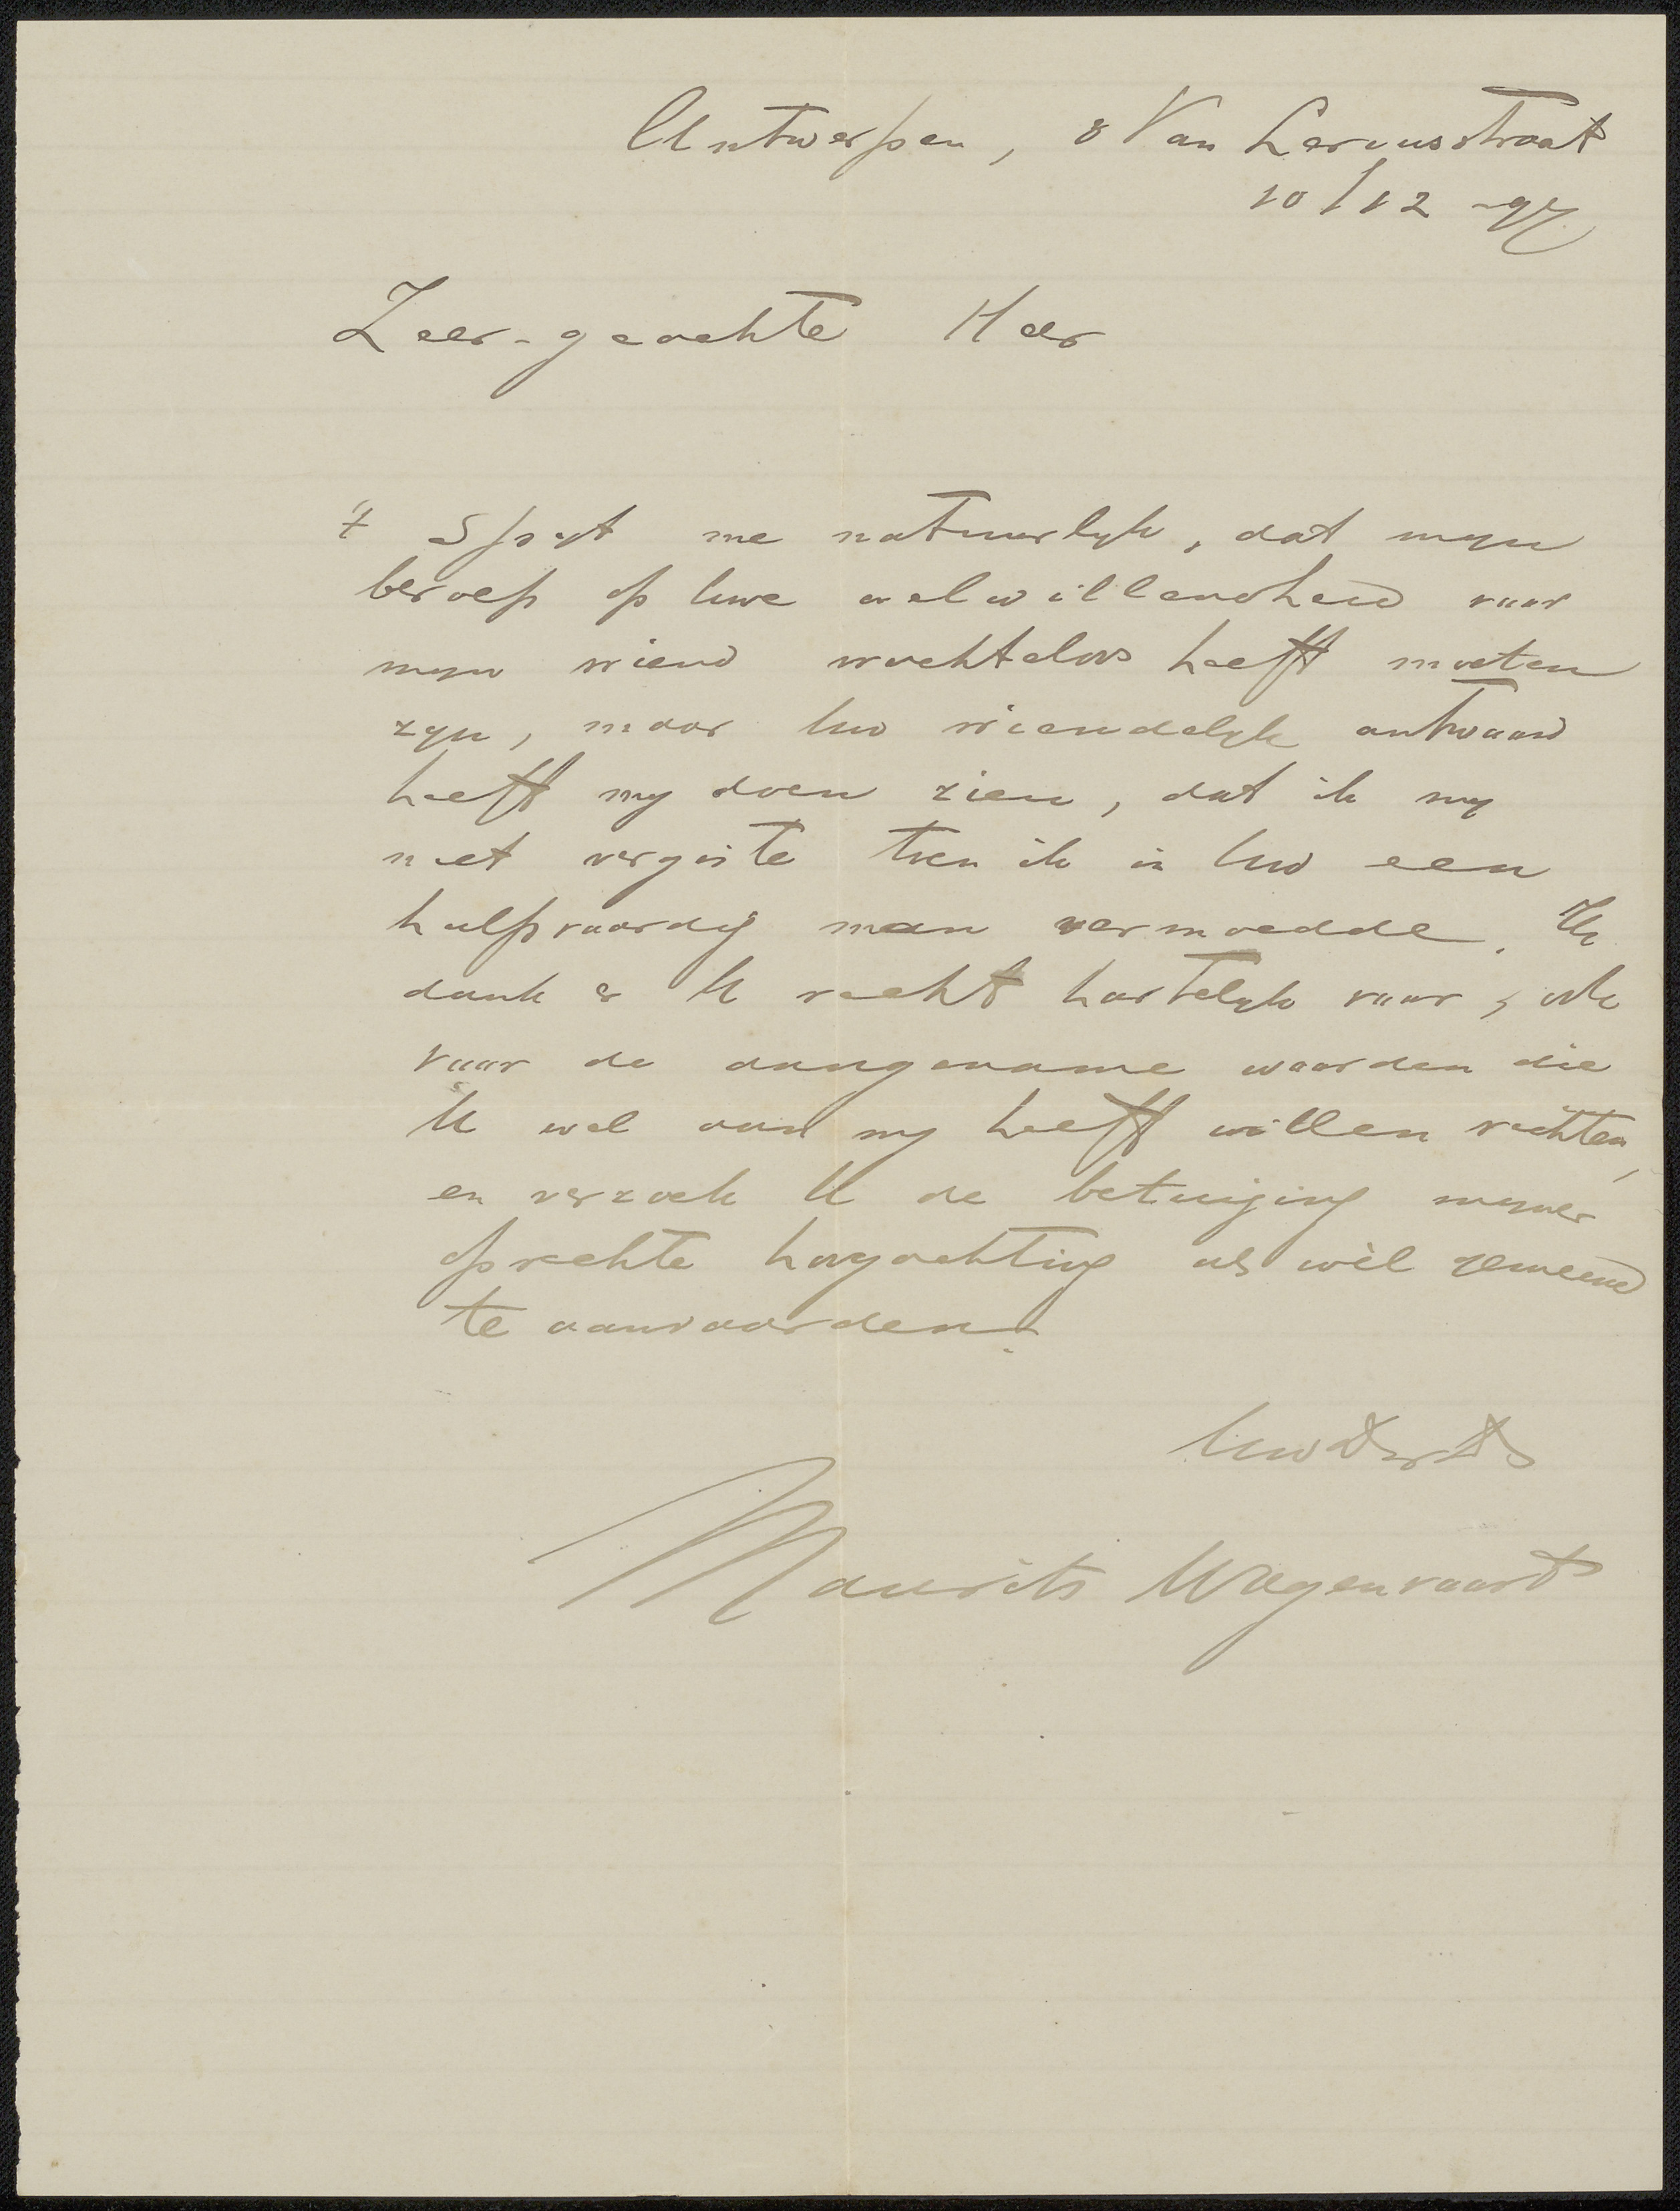 Antwerpen, 8 Van Leriusstraat
10/12 -97
Zeer-geachte Heer
't Spijt me natuurlijk, dat mijn
beroep op Uwe welwillendheid voor
mijn vriend vruchteloos heeft moeten
zijn, maar Uw vriendelijk antwoord
heeft mij doen zien, dat ik mij
niet vergiste toen ik in Uw een
hulpvaardig man vermoedde. Ik
dank er U recht hartelijk voor, ook
voor de aangename woorden die
U wel aan mij heeft willen richten,
en verzoek U de betuiging mijner
oprechte hoogachting als wèl gemeend
te aanvaarden.
Uw
Maurits Wagenvoort